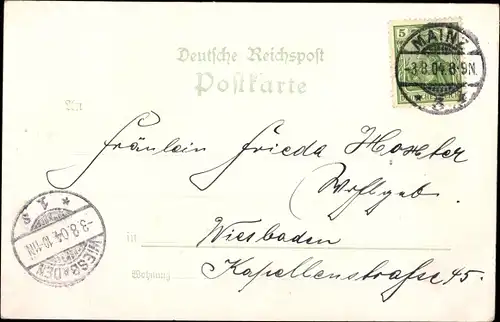 5
MAINZ
-3.8.04.8-9N.
* 3 *
Deutsche Reichspost
Postkarte
An
Fräulein Frieda
Wohlgeb.
in Wiesbaden
Wohnung Kapellenstrasse 45.
-3.8.04.10-11N.
WIESBADEN